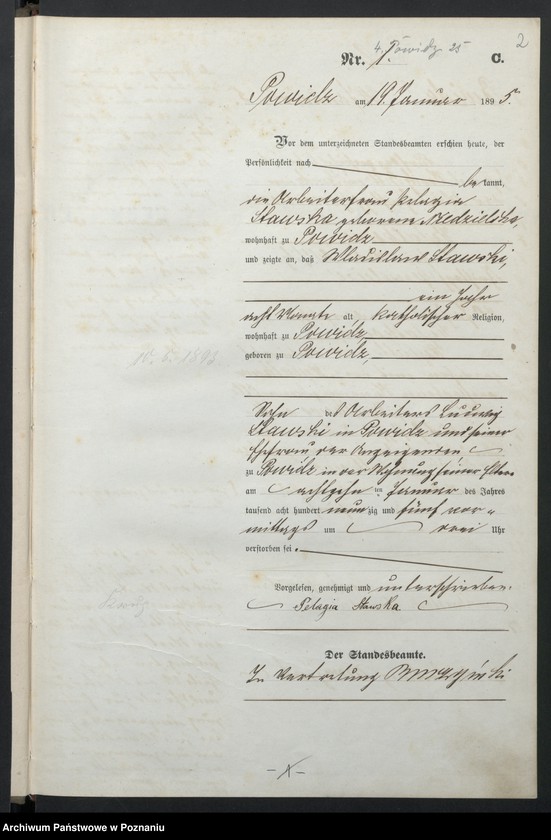 2
4. Powidz 25
Nr. 1. C.
Powidz am 19. Januar 1895.
Vor dem unterzeichneten Standesbeamten erschien heute, der
Persönlichkeit nach
bekannt,
die Arbeiterfrau Pelagia
Stawska geborene
wohnhaft zu Powidz
und zeigte an, daß Wladislaw Stawski,
ein Jahr
acht Monate alt, katholischer Religion,
wohnhaft zu Powidz,
geboren zu Powidz,
10. 5. 1893
Sohn des Arbeiters Ludwig
Stawski in Powidz und seiner
Ehefrau der Anzeigenden,
zu Powidz in der Wohnung seiner Eltern
am achtzehn ten Januar des Jahres
tausend acht hundert neunzig und fünf vor-
mittags um drei Uhr
verstorben sei.
Vorgelesen, genehmigt und unterschrieben.
Pelagia Stawska
Der Standesbeamte.
In Vertretung
Archiwum Państwowe w Poznaniu